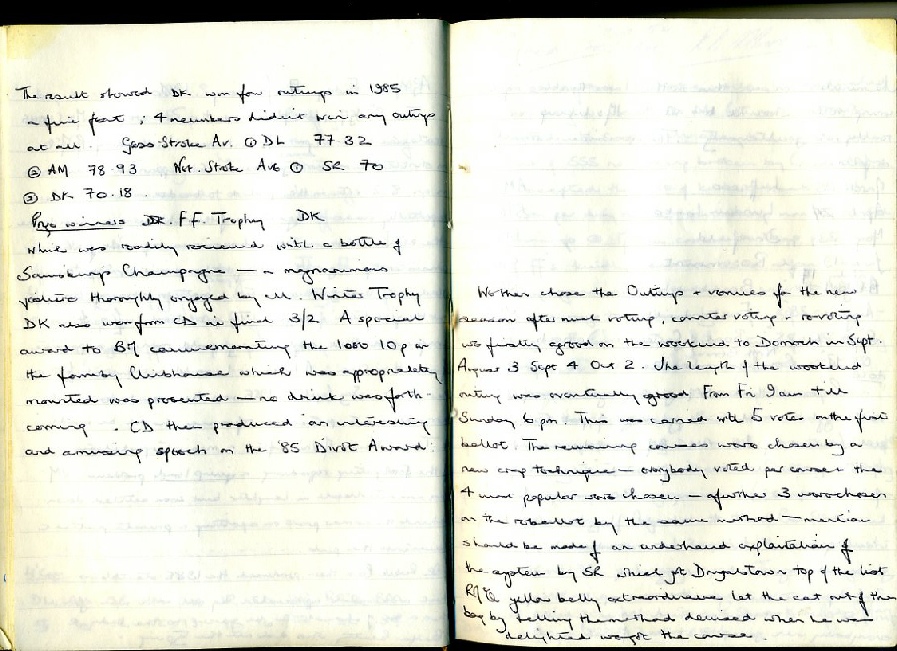 The result showed DK won four outings in 1985
a fine feat ; 4 members didn't win any outings
at all. Gross Stroke Av. ① DL 77.32
② AM 78.93 Net. Stroke Ave ① SR 70
③ DK 70.18
Prize winners F.F. Trophy DK
which was readily received with a bottle of
Sainsburys Champagne — a
gesture thoroughly enjoyed by all. Winter Trophy
DK also won from CD in final 3/2 A special
award to BM commemorating the 1000 10p in
the formby Clubhouse which was appropriately
mounted was presented — no drink was forth-
coming. CD then produced an interesting
and amusing speech on the '85 Divot Award.
We then chose the Outings & venues for the new
season after much voting, counter voting, revoting
we finally agreed on the weekend to Dornoch in Sept.
August 3 Sept 4 Oct 2. The length of the weekend
outing was eventually agreed From Fri 9am till
Sunday 6 pm. This was carried with 5 votes on the first
ballot. The remaining courses were chosen by a
new technique — everybody voted per course the
4 most popular were chosen — a further 3 were chosen
on the reballot by the same method — mention
should be made of an underhand exploitation of
the system by SR which got on top of the list
yellow belly extraordinaire let the cat out of the
bag by telling the method devised when he was
delighted we got the course.